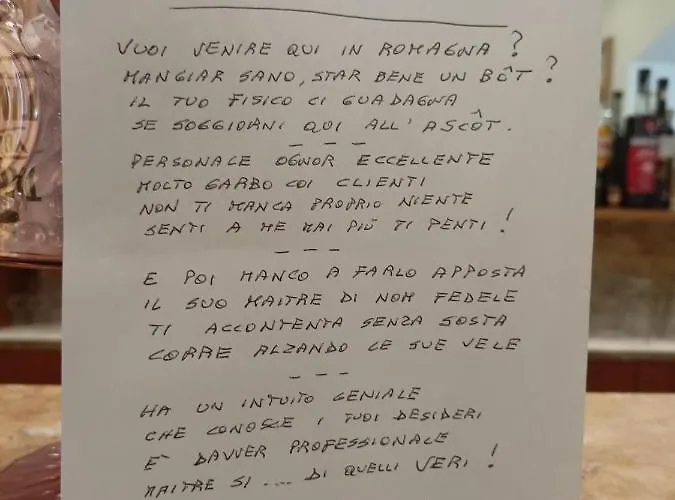 VUOI VENIRE QUI IN ROMAGNA?
MANGIAR SANO, STAR BENE UN BÔT?
IL TUO FISICO CI GUADAGNA
SE SOGGIORNI QUI ALL'ASCÔT.
- - -
PERSONALE OGNOR ECCELLENTE
MOLTO GARBO COI CLIENTI
NON TI MANCA PROPRIO NIENTE
SENTI A ME MAI PIÙ TI PENTI!
- - -
E POI MANCO A FARLO APPOSTA
IL SUO MAITRE DI NOM FEDELE
TI ACCONTENTA SENZA SOSTA
CORRE ALZANDO LE SUE VELE
- - -
HA UN INTUITO GENIALE
CHE CONOSCE I TUOI DESIDERI
E' DAVVER PROFESSIONALE
MAITRE SI .... DI QUELLI VERI!